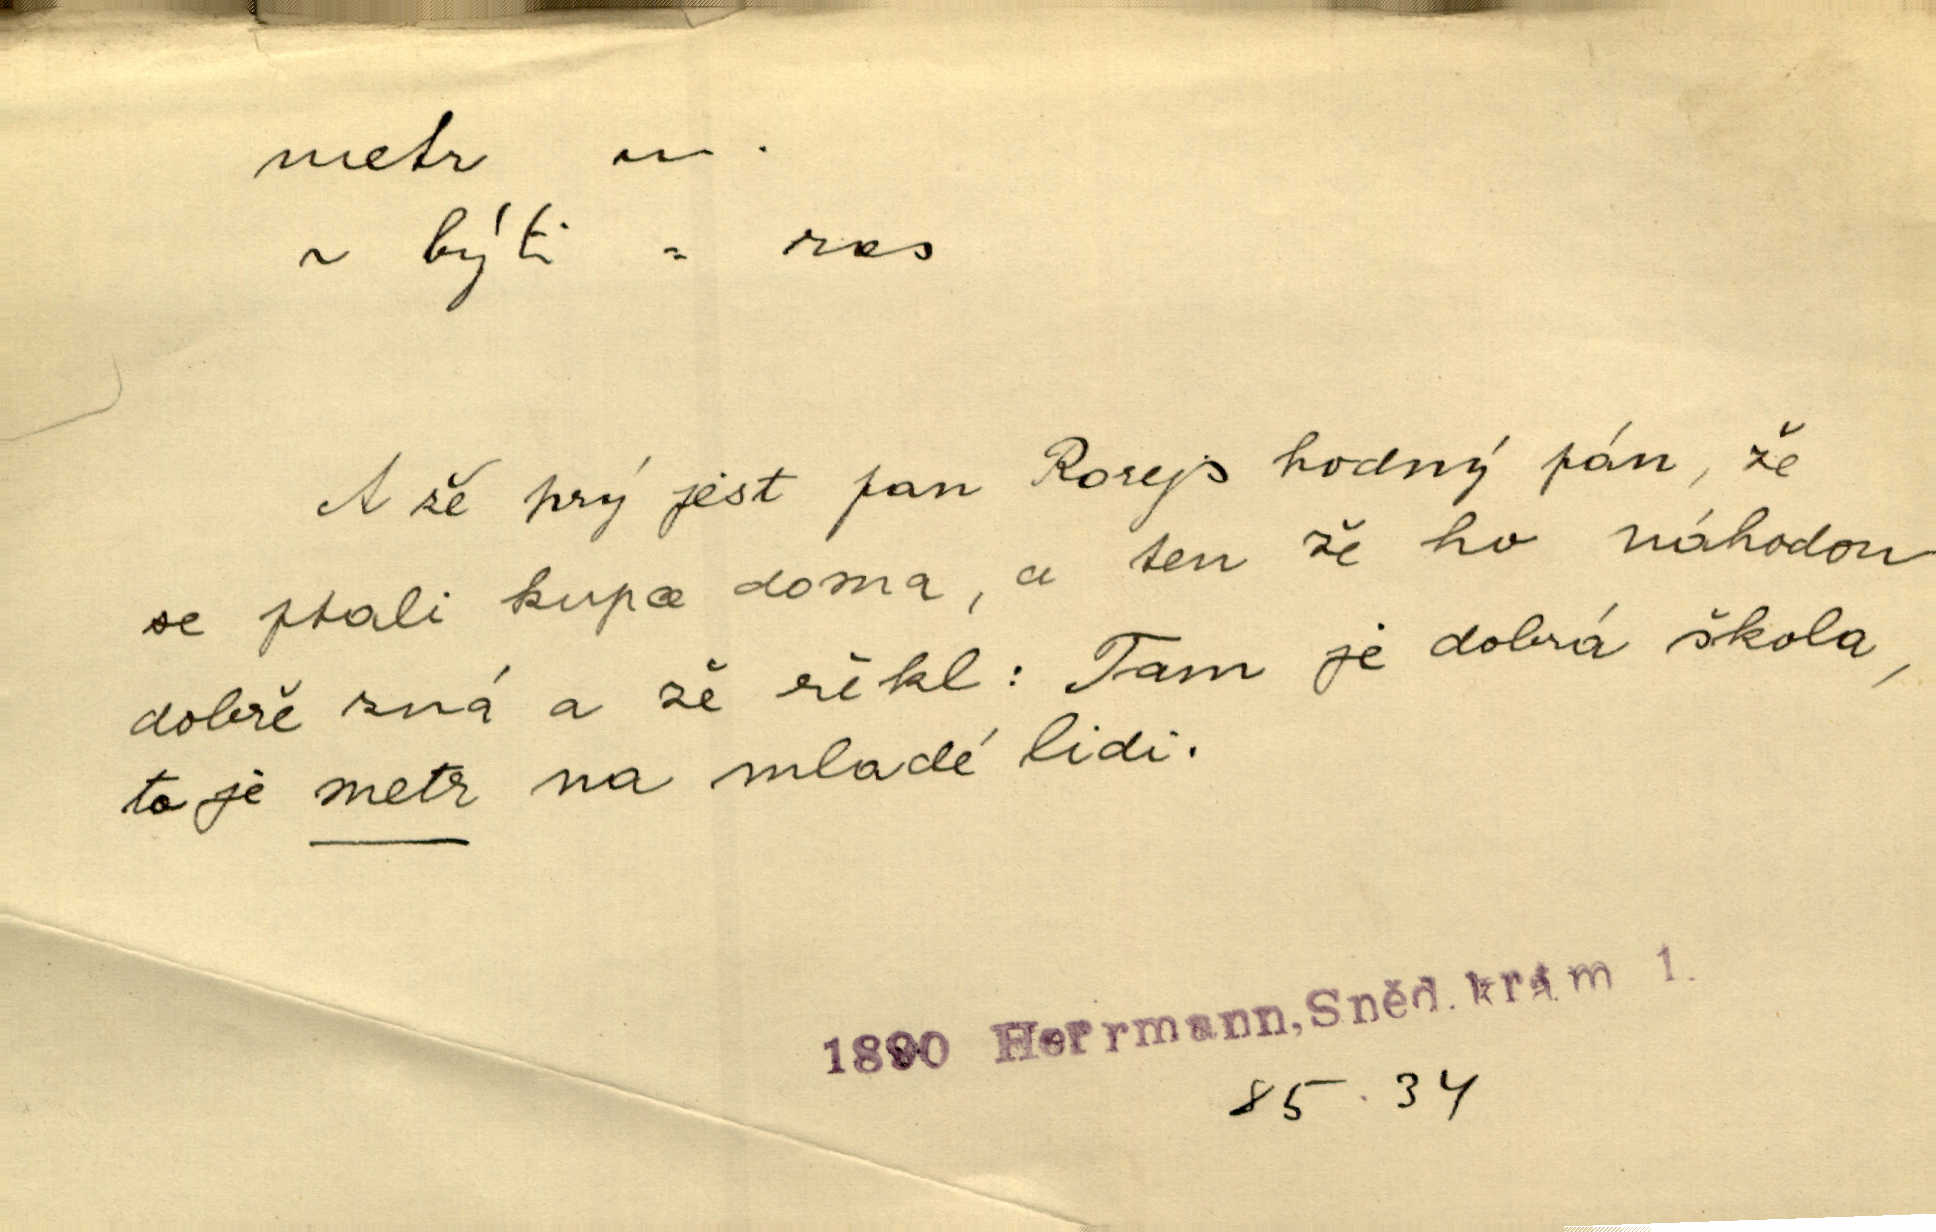 metr m.
~ býti = ras
A že prý jest pan Rorejs hodný pán, že
se ptali kupce doma, a ten že ho náhodou
dobře zná a že řekl: Tam je dobrá škola,
to je metr na mladé lidi.
1890 Herrmann, Sněd. krám 1.
85.34